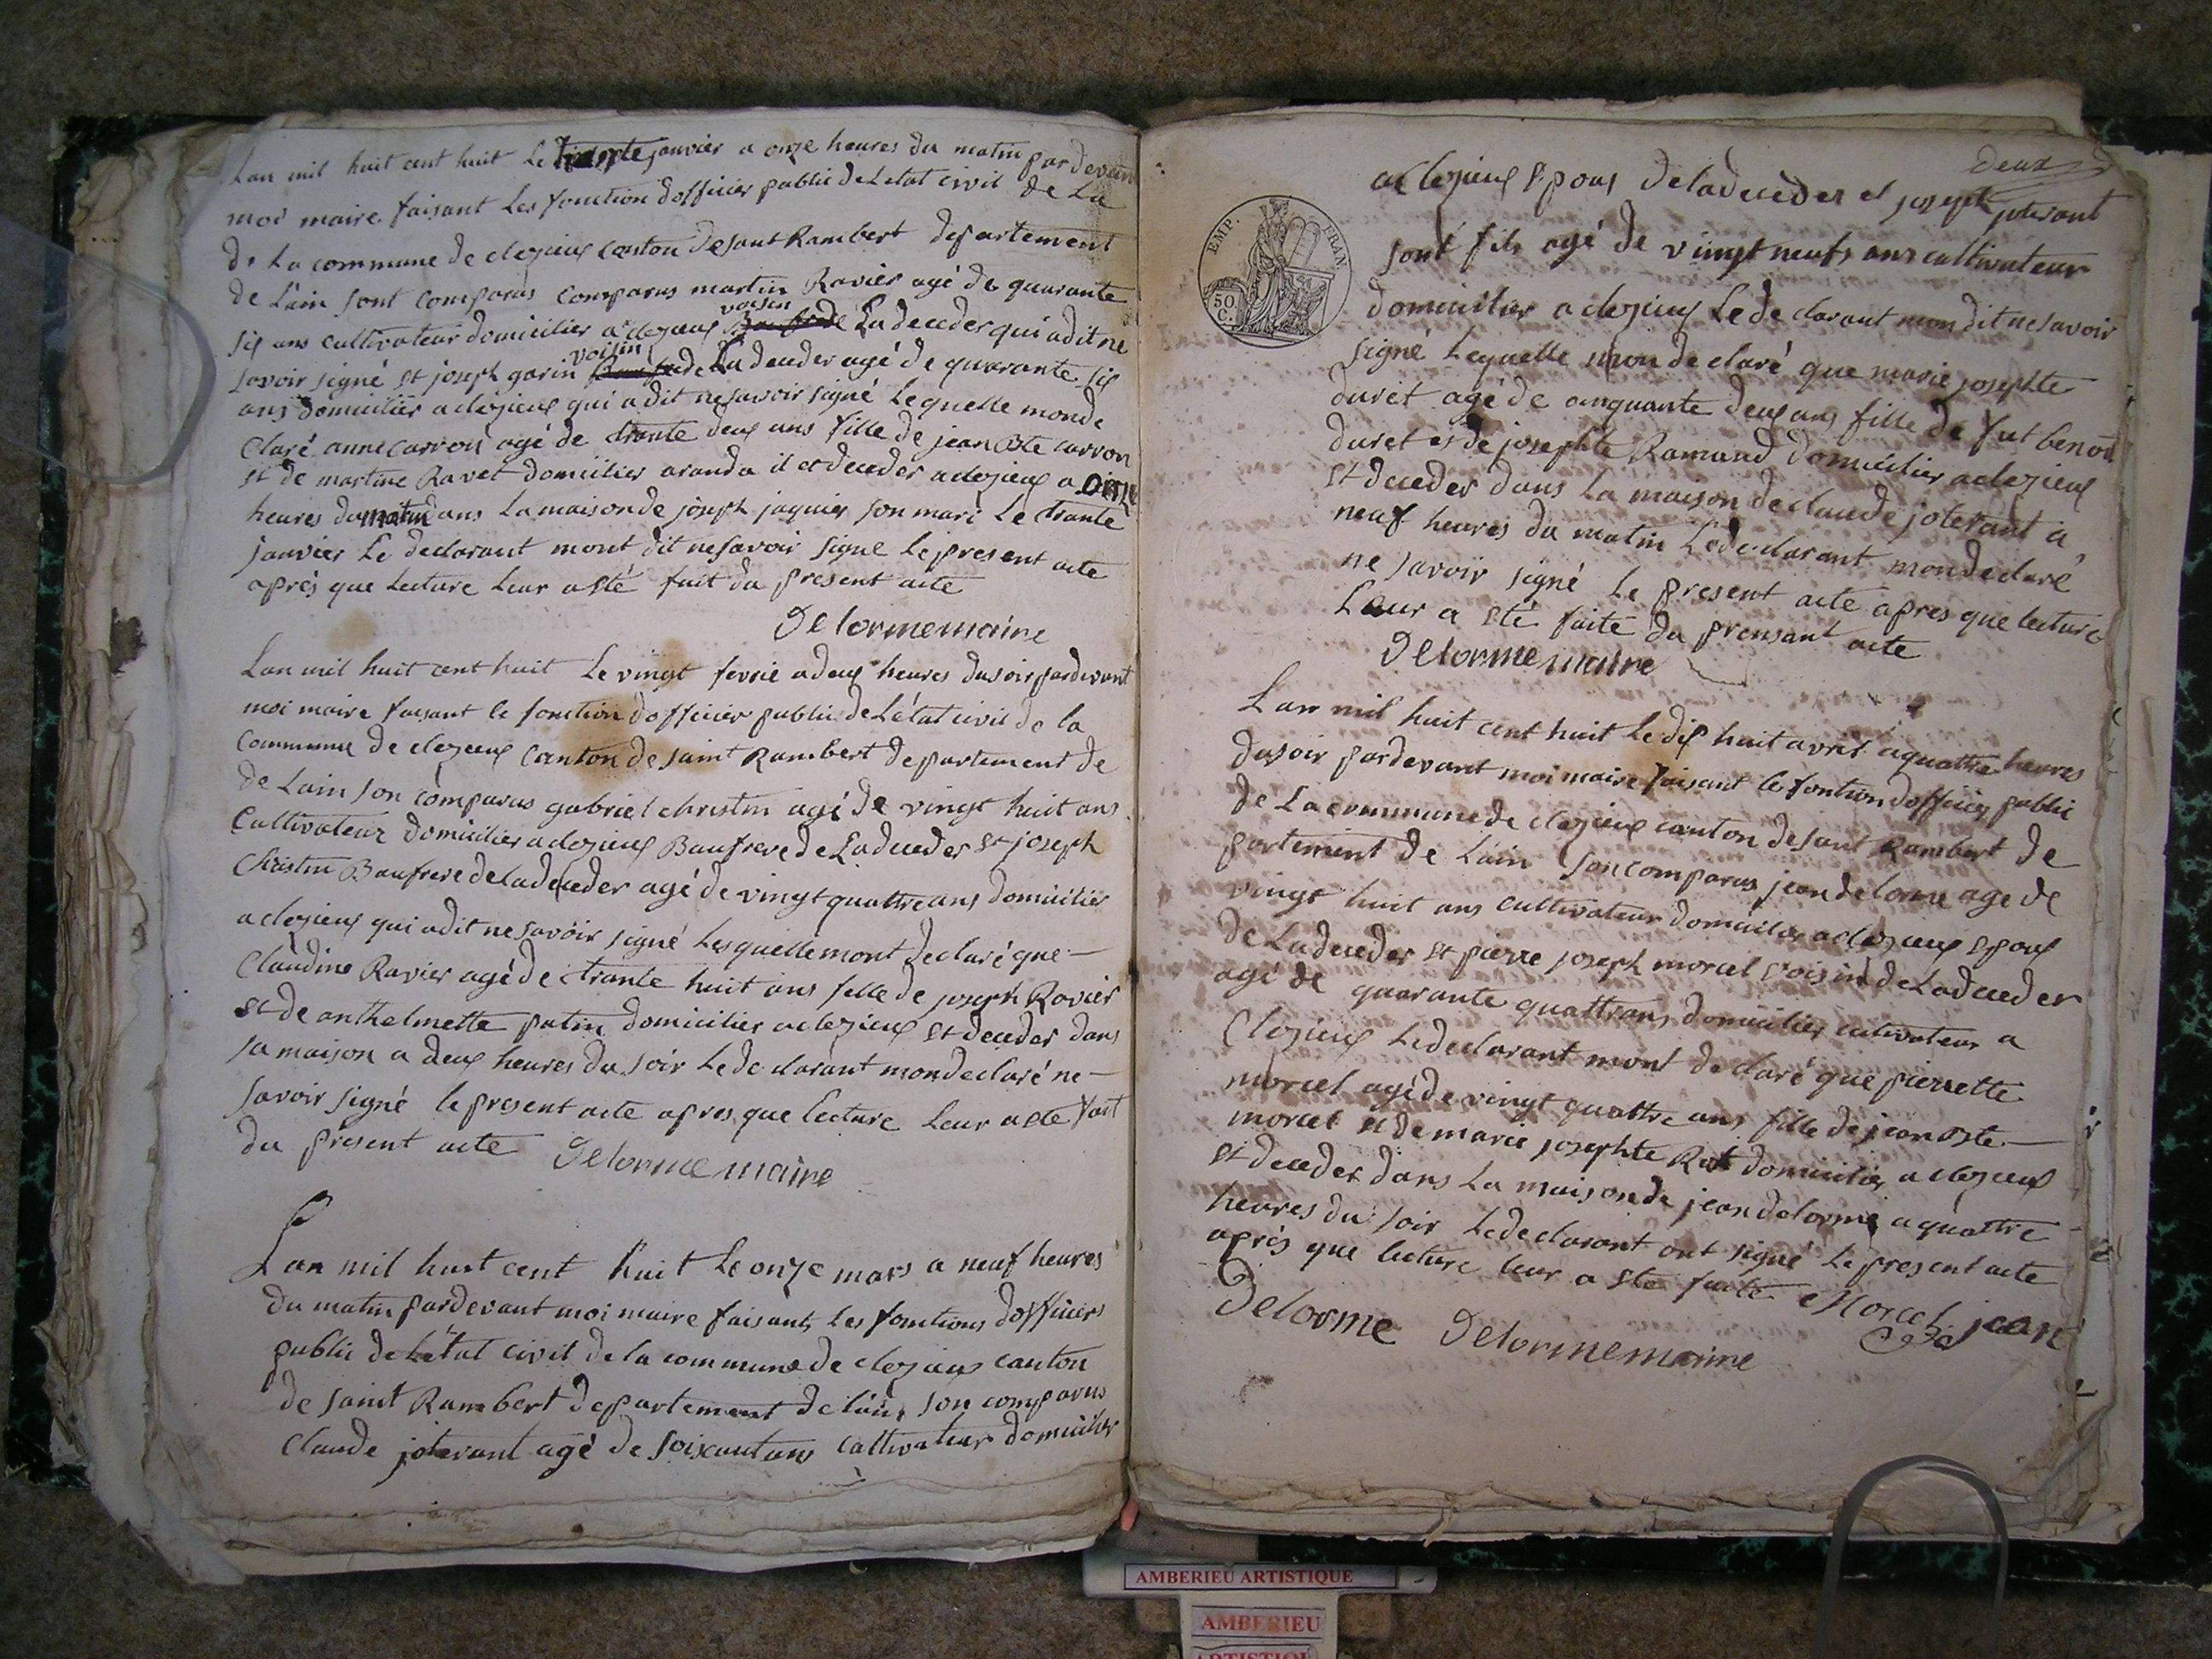 Lan mil huit cent huit Le trante janvier a onze heures du matin pardevant
moi maire faisant Les fonction dofficier public de Letat civil de La
de La commune de clezieux canton de saut Rambert departement
de Lain sont comparus comparus martin Ravier agé de quarante
voisin
six ans cultivateur domicilier a clezieux La deceder qui a dit ne
voisin
savoir signé et joseph garin La deceder agé de quarante six
ans domicilier a clezieux qui a dit ne savoir signé Lequelle mon de
claré anne carron agé de trante deux ans fille de jean Bte carron
et de martine Ravet domicilier aranda il et deceder a clezieux a onze
heures du matin dans La maison de joseph jaquier son mari Le trante
janvier Le declarant mont dit ne savoir signé Le present acte
après que Lecture Leur a été fait du present acte
Delorme maire
Lan mil huit cent huit Le vingt fevrie a deux heures du soir pardevant
moi maire faisant le fonction dofficier public de Létat civil de la
commune de clezieux canton de saint Rambert departement de
de Lain son comparus gabriel christin agé de vingt huit ans
Cultivateur domicilier a clezieux Baufrere de La deceder et joseph
Christin Baufrere de La deceder agé de vingt quattre ans domicilier
a clezieux qui a dit ne savoir signé Lesquelle mont declaré que
Claudine Ravier agé de trante huit ans fille de joseph Ravier
et de anthelmette patin domicilier a clezieux et deceder dans
sa maison a deux heures du soir Le declarant mon declaré ne
savoir signé le present acte apres que lecture Leur a été fait
du present acte Delorme maire
Lan mil huit cent huit Le onze mars a neuf heures
du matin pardevant moi maire faisant les fonctions dofficiers
public de Létat civil de la commune de clezieux canton
de saint Rambert departement de lain son comparus
Claude joterant agé de soixantans cultivateur domicilier
deux
a clezieux Epous de la deceder et joseph joterant
sont fils agé de vingt neufs ans cultivateur
domicilier a clezieux Le declarant mon dit ne savoir
signé Lequelle mon declaré que marie josephte
duret agé de cinquante deux ans fille de fut benoit
duret et de josephte Ramand domicilier a clezieux
et deceder dans La maison de claude joterant a
neuf heures du matin Le declarant mon declaré
ne savoir signé Le present acte apres que lecture
Leur a été faite du prensant acte
Delorme maire
EMP. FRAN.
50 C.
Lan mil huit cent huit Le dix huit avril a quattre heures
du soir pardevant moi maire faisant les fontion dofficier public
de La commune de clezieux canton de saut Rambert de
partement de Lain son comparus jean delorme age de
vingt huit ans cultivateur domicilier a clezieux epoux
de La deceder et pierre joseph morcel voisin de La deceder
agé de quarante quattrans domicilier cultivateur a
Clezieux Le declarant mont declaré que pierrette
morcel agé de vingt quattre ans fille de jean Bte
morcel et de marie josephte Rut domicilier a clezieux
et deceder dans La maison de jean delorme a quattre
heures du soir Le declarant ont signé Le present acte
après que lecture leur a été faite Morcel jean
Delorme Delorme maire
AMBERIEU ARTISTIQUE
AMBERIEU
ARTISTIQUE